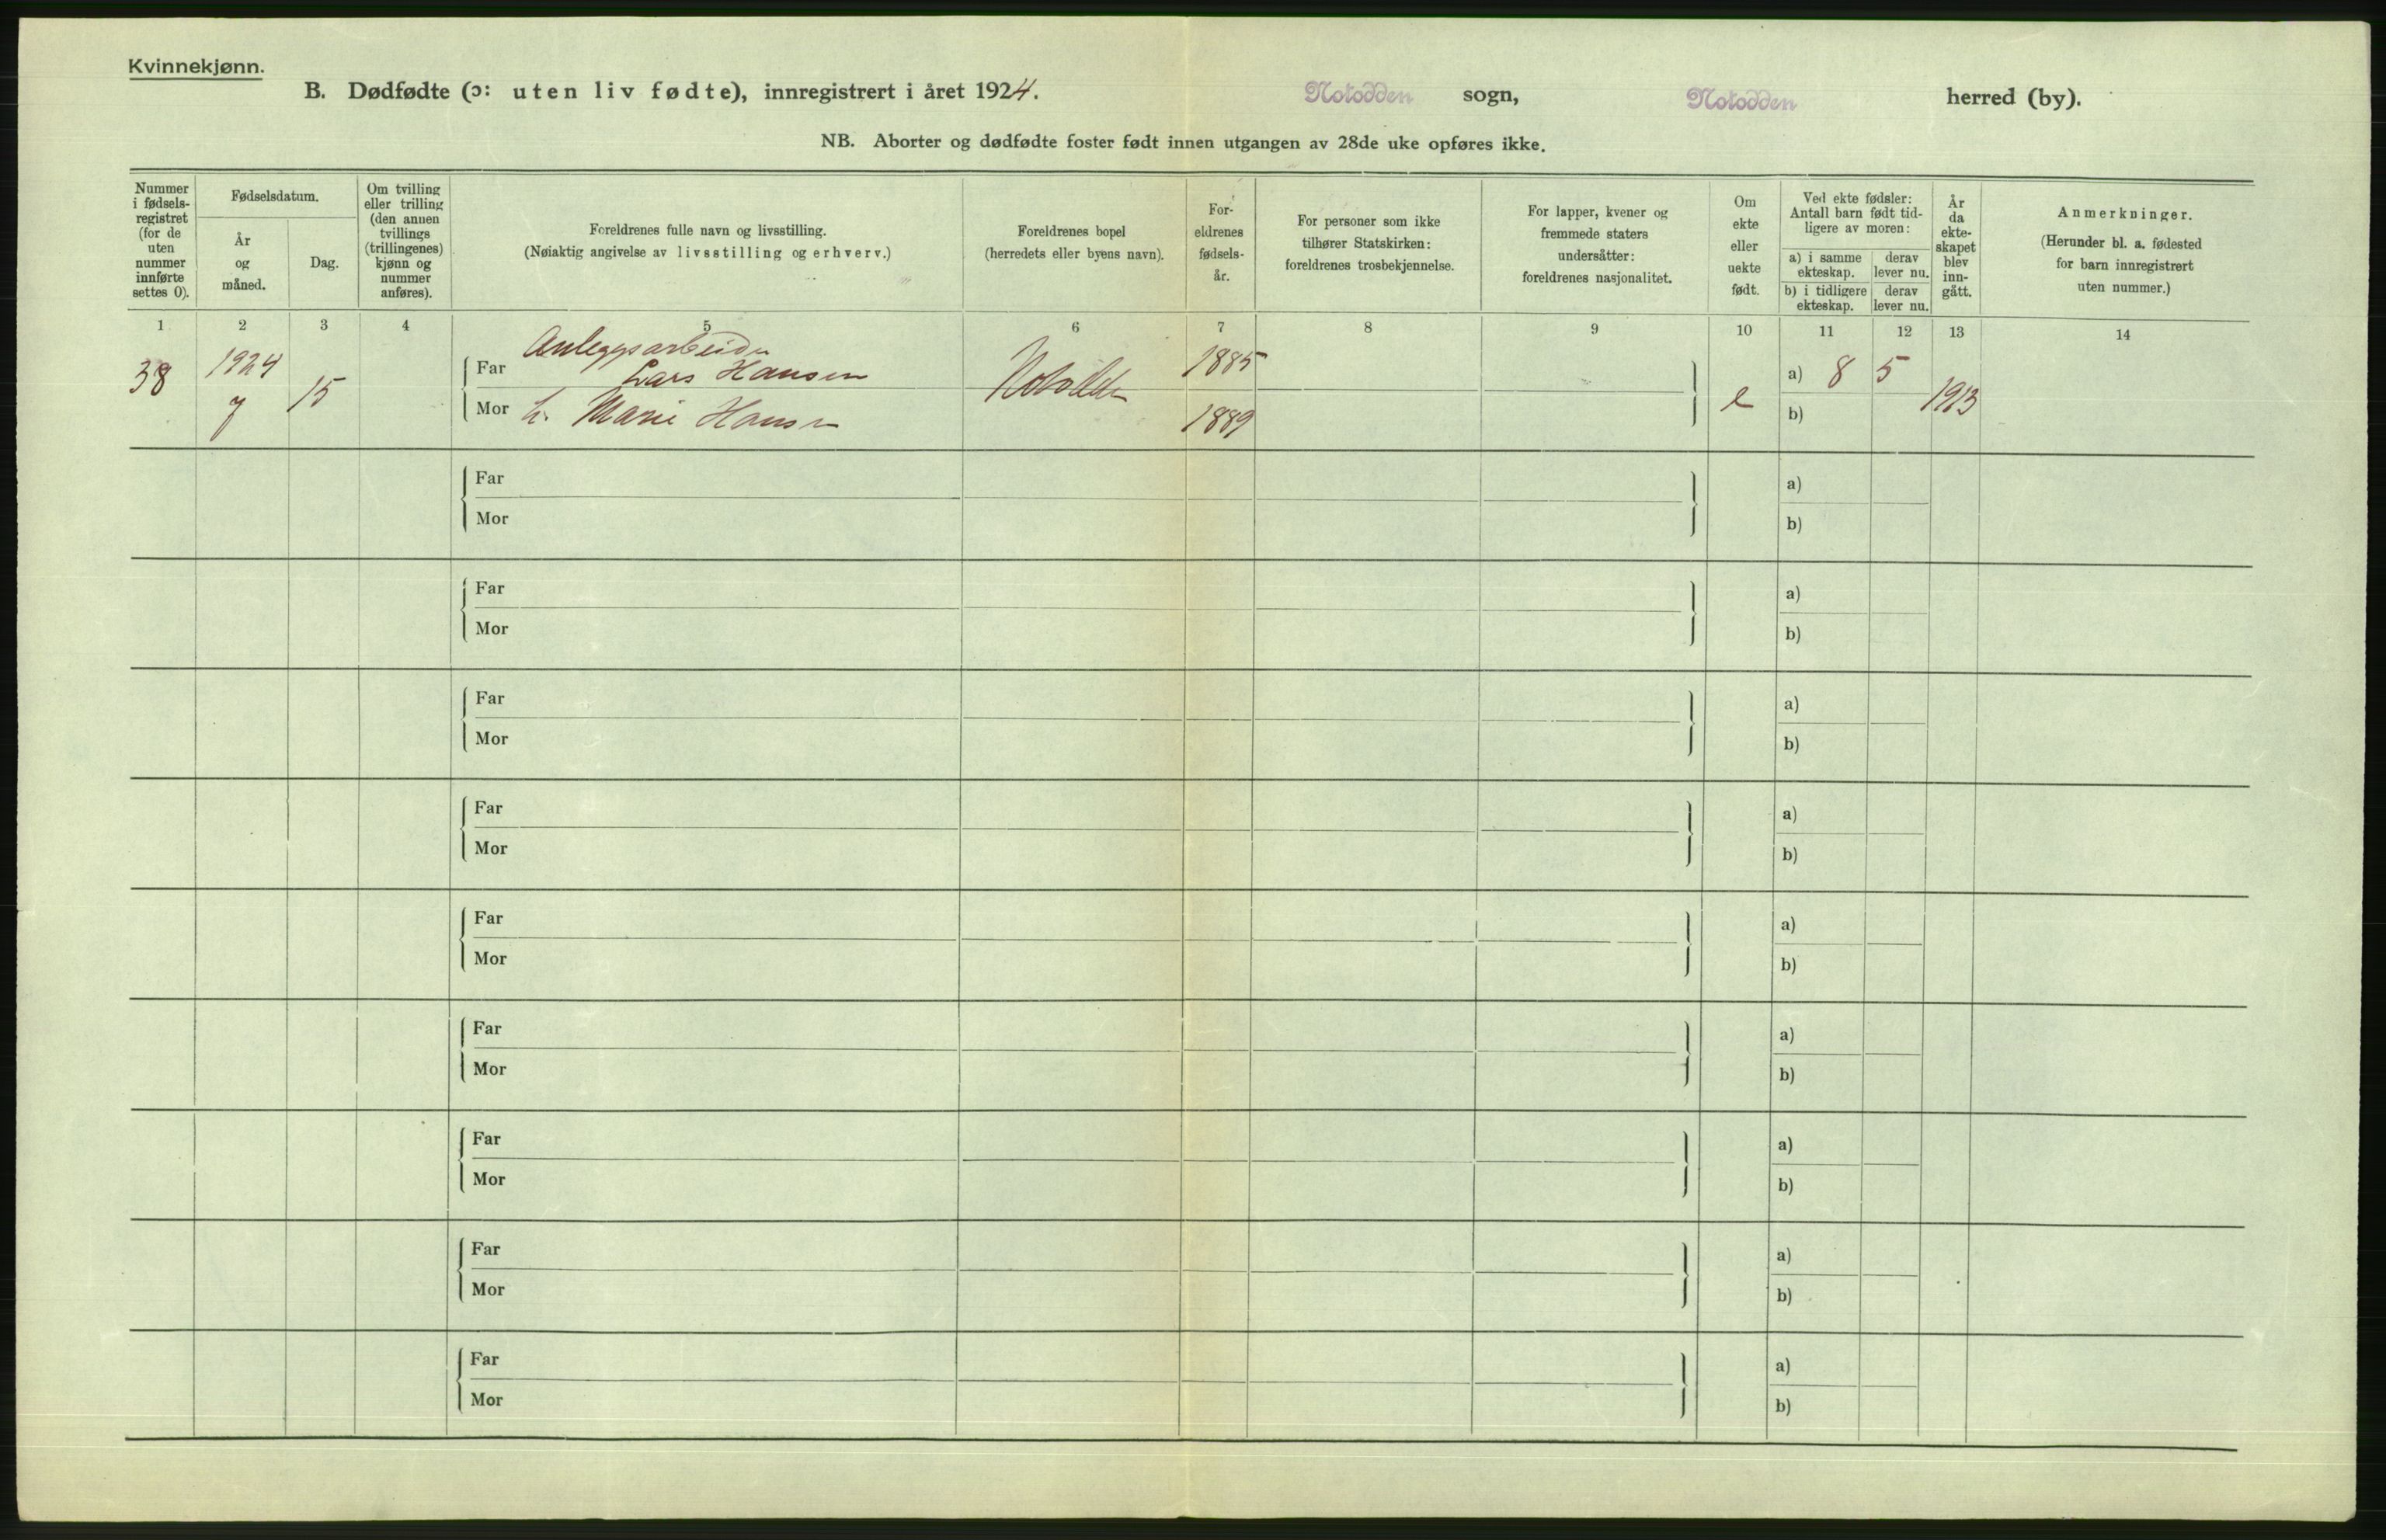 Kvinnekjønn.
B. Dødfødte (ɔ: uten liv fødte), innregistrert i året 1924. Notodden sogn, Notodden herred (by).
NB. Aborter og dødfødte foster født innen utgangen av 28de uke opføres ikke.
Nummer i fødsels-registret (for de uten nummer innførte settes 0).
Fødselsdatum.
År og måned.
Dag.
Om tvilling eller trilling (den annen tvillings (trillingenes) kjønn og nummer anføres).
Foreldrenes fulle navn og livsstilling.
(Nøiaktig angivelse av livsstilling og erhverv.)
Foreldrenes bopel
(herredets eller byens navn).
For-eldrenes fødsels-år.
For personer som ikke tilhører Statskirken: foreldrenes trosbekjennelse.
For lapper, kvener og fremmede staters undersåtter: foreldrenes nasjonalitet.
Om ekte eller uekte født.
Ved ekte fødsler: Antall barn født tid-ligere av moren:
a) i samme ekteskap.
derav lever nu.
b) i tidligere ekteskap.
derav lever nu.
År da ekte-skapet blev inn-gått.
Anmerkninger.
(Herunder bl. a. fødested for barn innregistrert uten nummer.)
1 2 3 4 5 6 7 8 9 10 11 12 13 14
38 1924 7 15
Anleggsarbeider
Far Lars Hansen Notodden 1885
Mor h. Marie Hansen 1889
e a) 8 5 1913
b)
Far a)
Mor b)
Far a)
Mor b)
Far a)
Mor b)
Far a)
Mor b)
Far a)
Mor b)
Far a)
Mor b)
Far a)
Mor b)
Far a)
Mor b)
Far a)
Mor b)